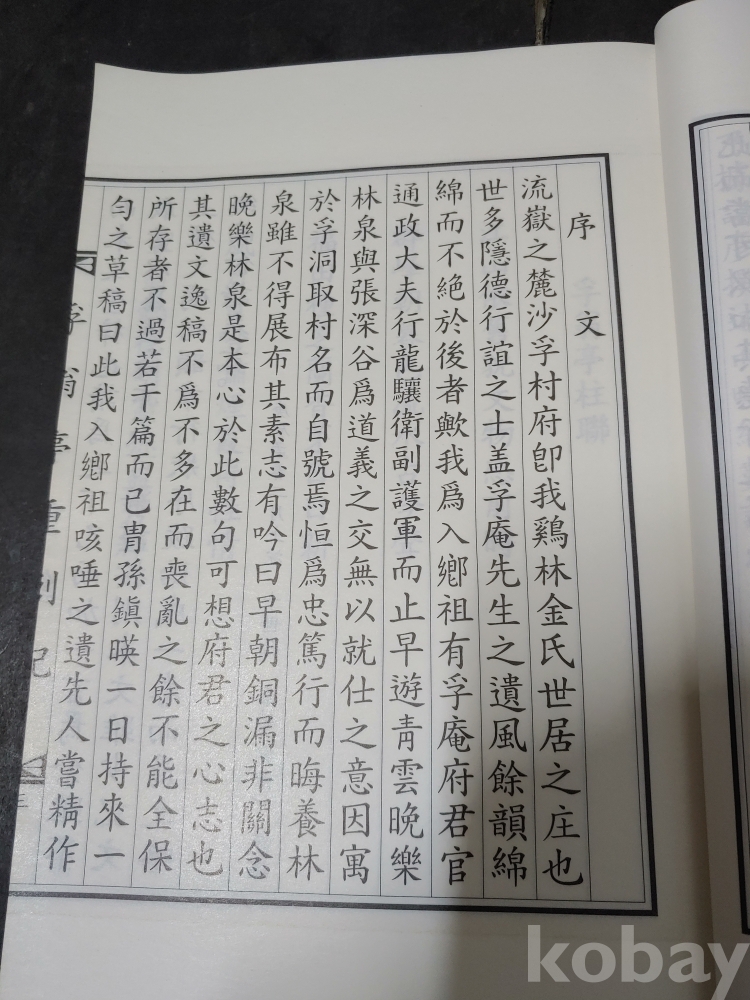 序文
流嶽之麓沙孚村府卽我鷄林金氏世居之庄也
世多隱德行誼之士盖孚庵先生之遺風餘韻綿
綿而不絶於後者歟我爲入鄕祖有孚庵府君官
通政大夫行龍驤衛副護軍而止早遊靑雲晩樂
林泉與張深谷爲道義之交無以就仕之意因寓
於孚洞取村名而自號焉恒爲忠篤行而晦養林
泉雖不得展布其素志有吟曰早朝銅漏非關念
晩樂林泉是本心於此數句可想府君之心志也
其遺文逸稿不爲不多在而喪亂之餘不能全保
所存者不過若干篇而已胄孫鎭暎一日持來一
勻之草稿曰此我入鄕祖咳唾之遺先人嘗精作
亭重刱記
kobay